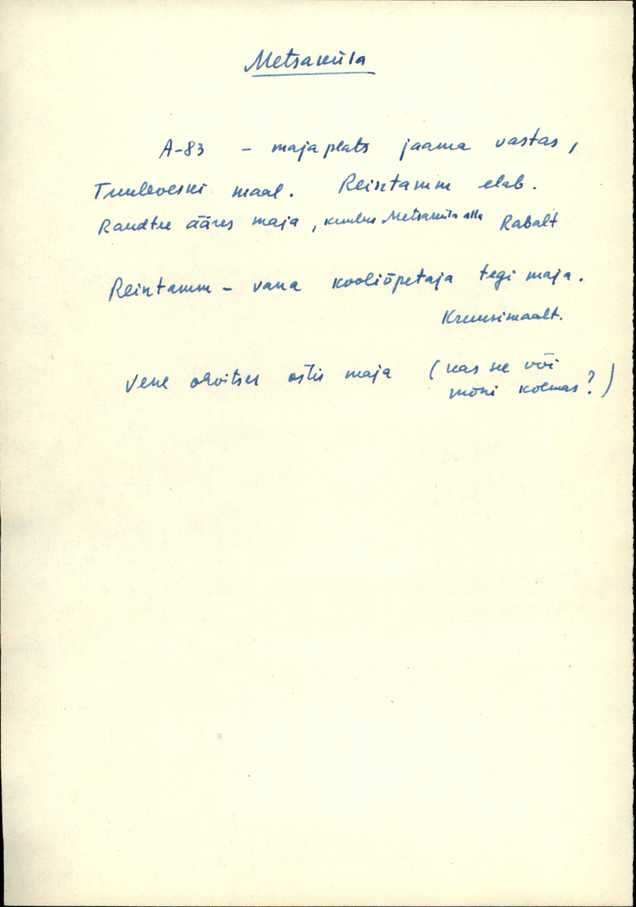 Metsaküla
A-83 - maja plats jaama vastas,
Tuuleveski maal. Reintamm elab.
Raudtee ääres maja, kuulus Metsaküla alla Rabalt
Reintamm - vana kooliõpetaja tegi maja.
Kruusimaalt.
Vene ohvitser ostis maja (kas see või
mõni kolmas?)